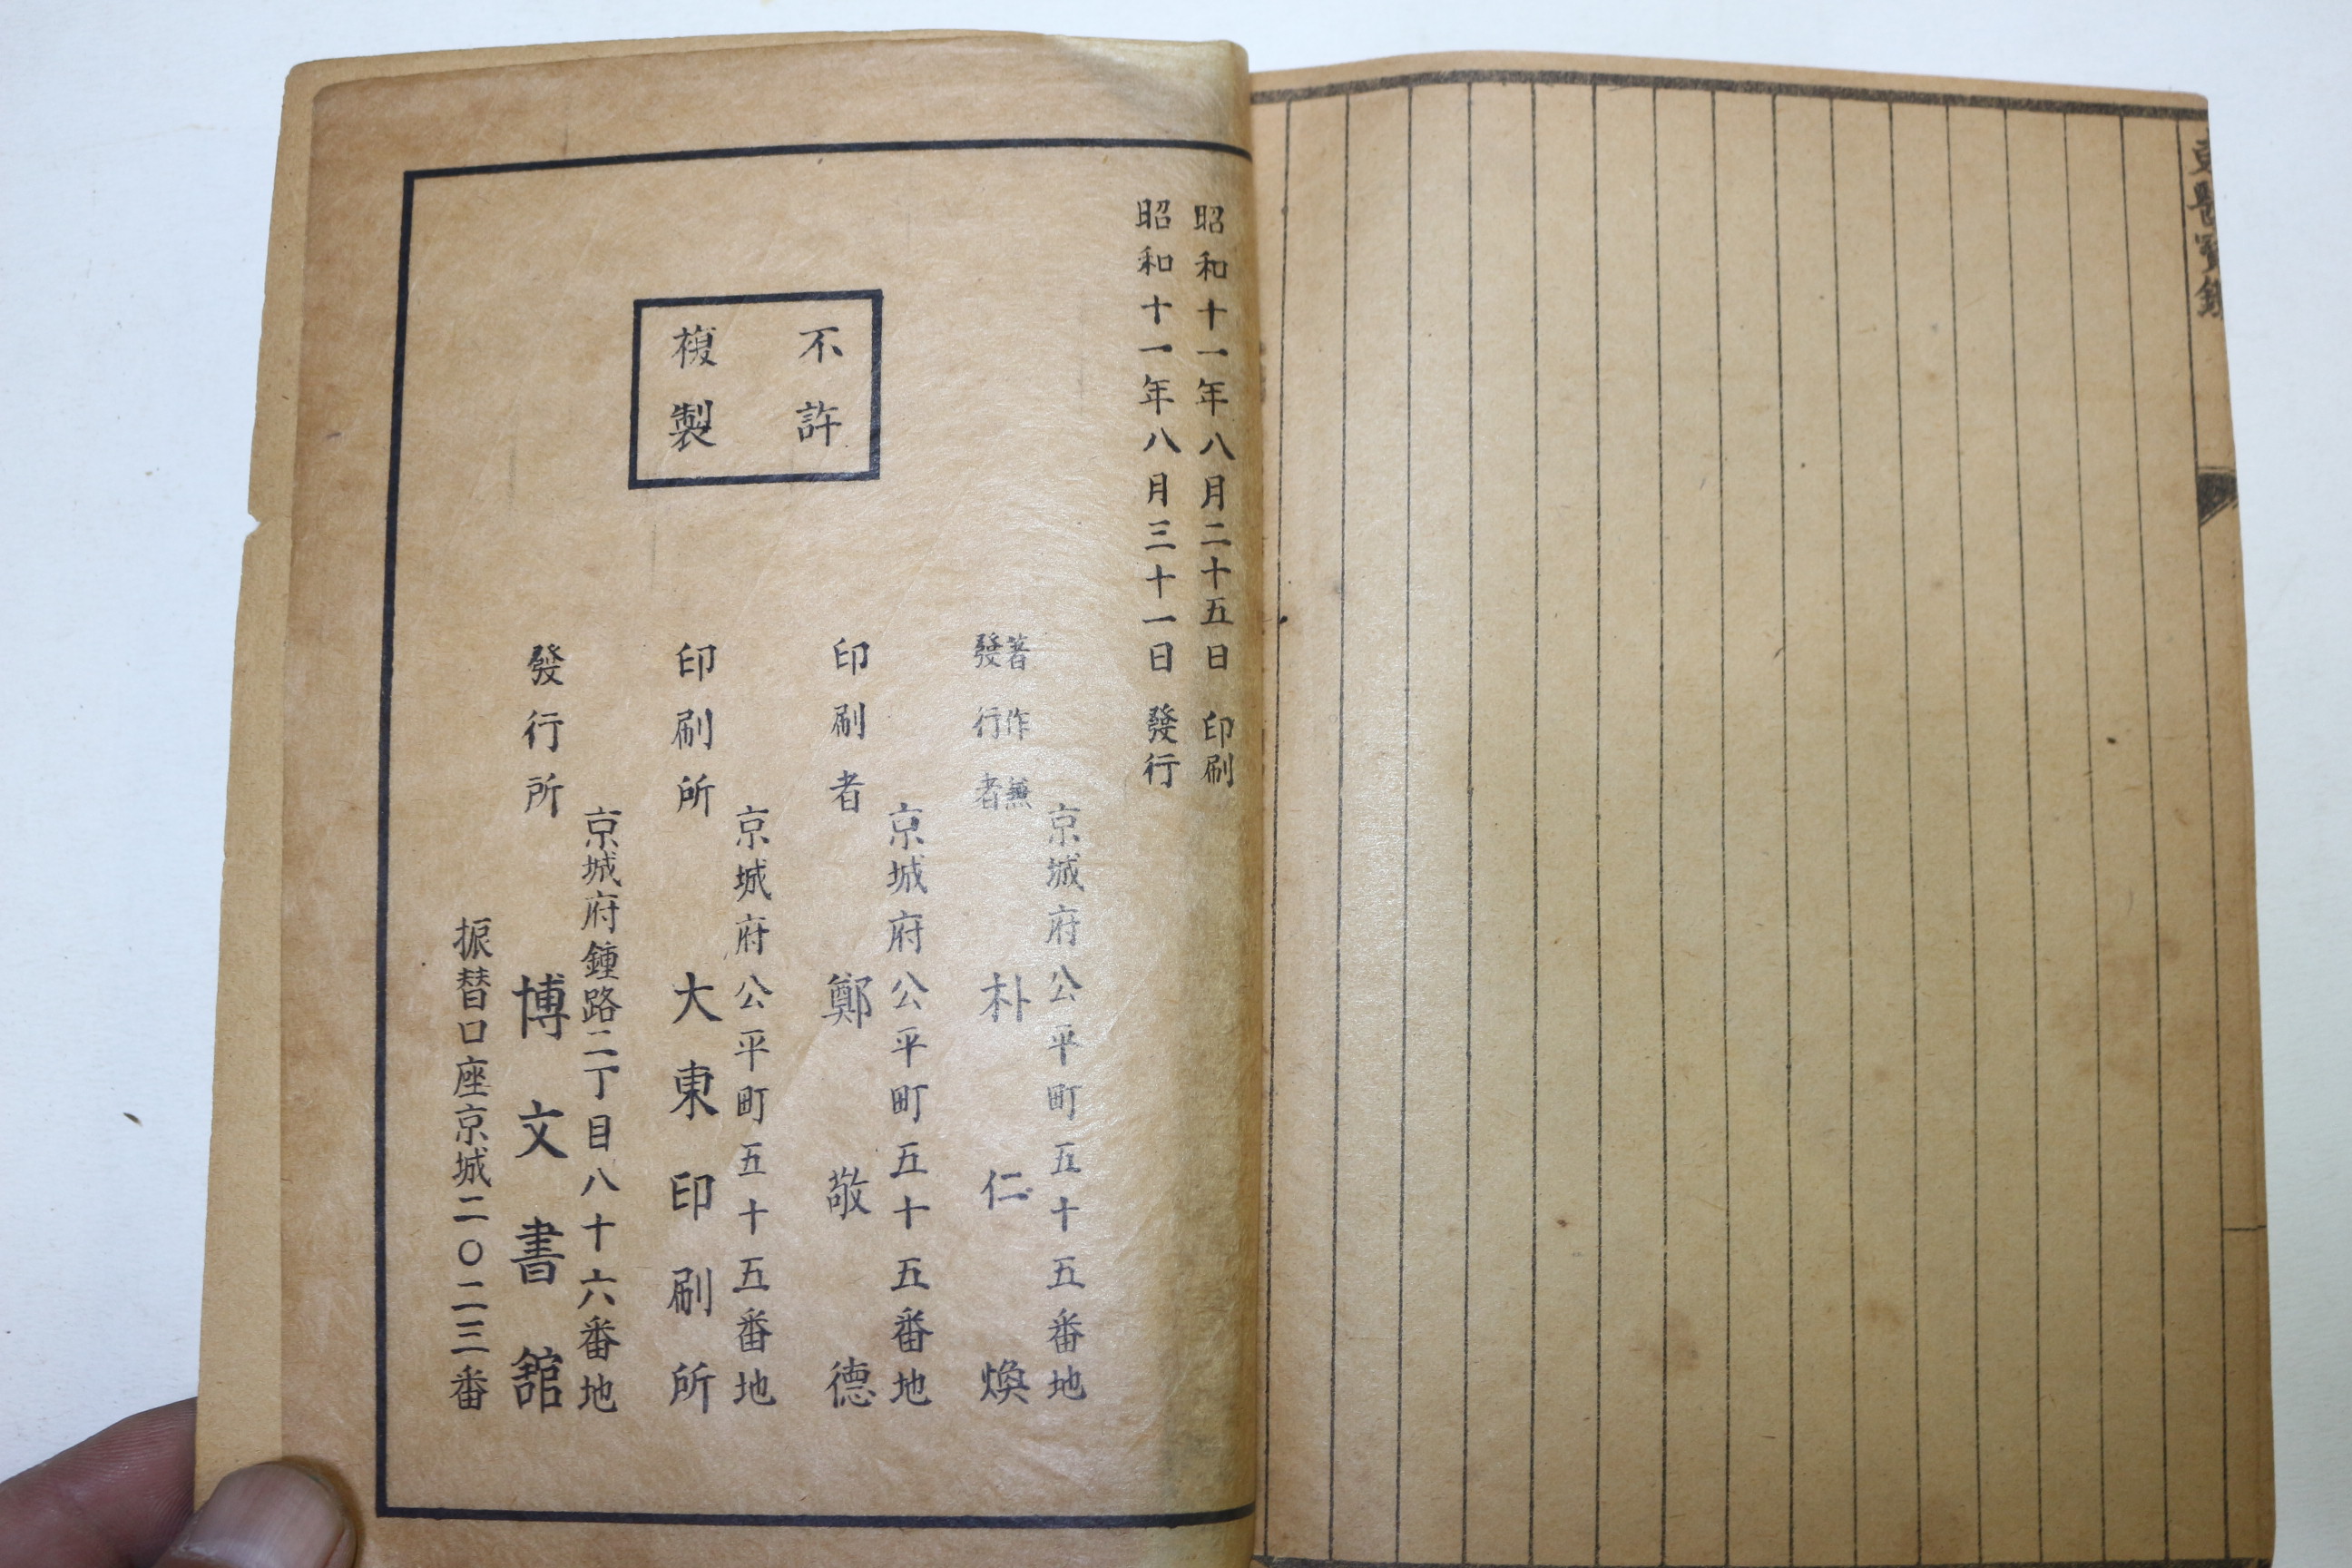 東醫寶鑑
昭和十一年八月二十五日 印刷
昭和十一年八月三十一日 發行
不許
複製
京城府公平町五十五番地
著作兼
發行者
朴仁煥
京城府公平町五十五番地
印刷者 鄭敬德
京城府公平町五十五番地
印刷所 大東印刷所
京城府鍾路二丁目八十六番地
發行所 博文書舘
振替口座京城二〇二三番